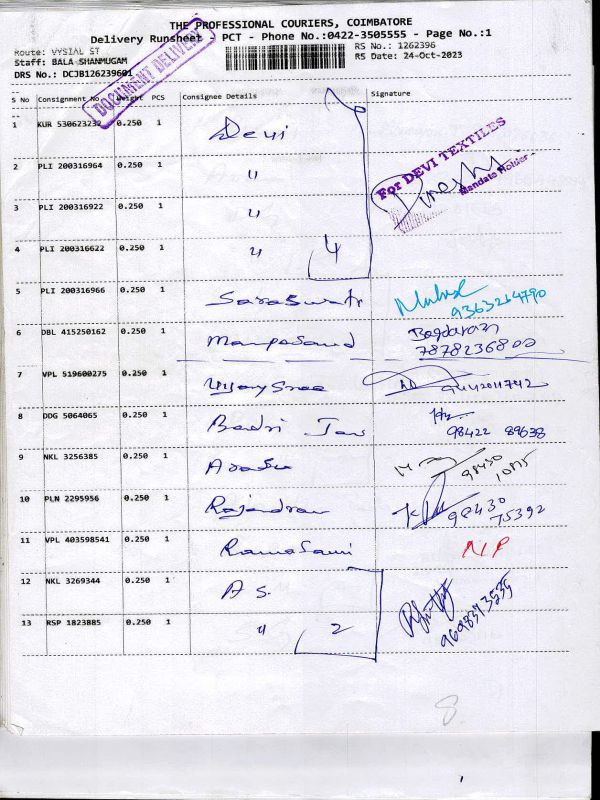 THE PROFESSIONAL COURIERS, COIMBATORE
Delivery Runsheet PCT - Phone No.:0422-3505555 - Page No.:1
Route: VYSIAL ST
RS No.: 1262396
Staff: BALA SHANMUGAM
RS Date: 24-Oct-2023
DRS No.: DCJB126239601
DOCUMENT DELIVERY
S No Consignment No. Weight PCS Consignee Details Signature
1 KUR 530623232 0.250 1 Devi
2 PLI 200316964 0.250 1 "
For DEVI TEXTILES
Mandate Holder
3 PLI 200316922 0.250 1 "
4 PLI 200316622 0.250 1 " 4
5 PLI 200316966 0.250 1 Saraswati 9363214790
6 DBL 415250162 0.250 1 7878236800
7 VPL 519600275 0.250 1 Vijaysree
8 DDG 5064065 0.250 1 Badri 98422 89638
9 NKL 3256385 0.250 1 98430
10 PLN 2295956 0.250 1 Rajendran 98430 75392
11 VPL 403598541 0.250 1 Ramasami
12 NKL 3269344 0.250 1 A S.
13 RSP 1823885 0.250 1 " 2
8